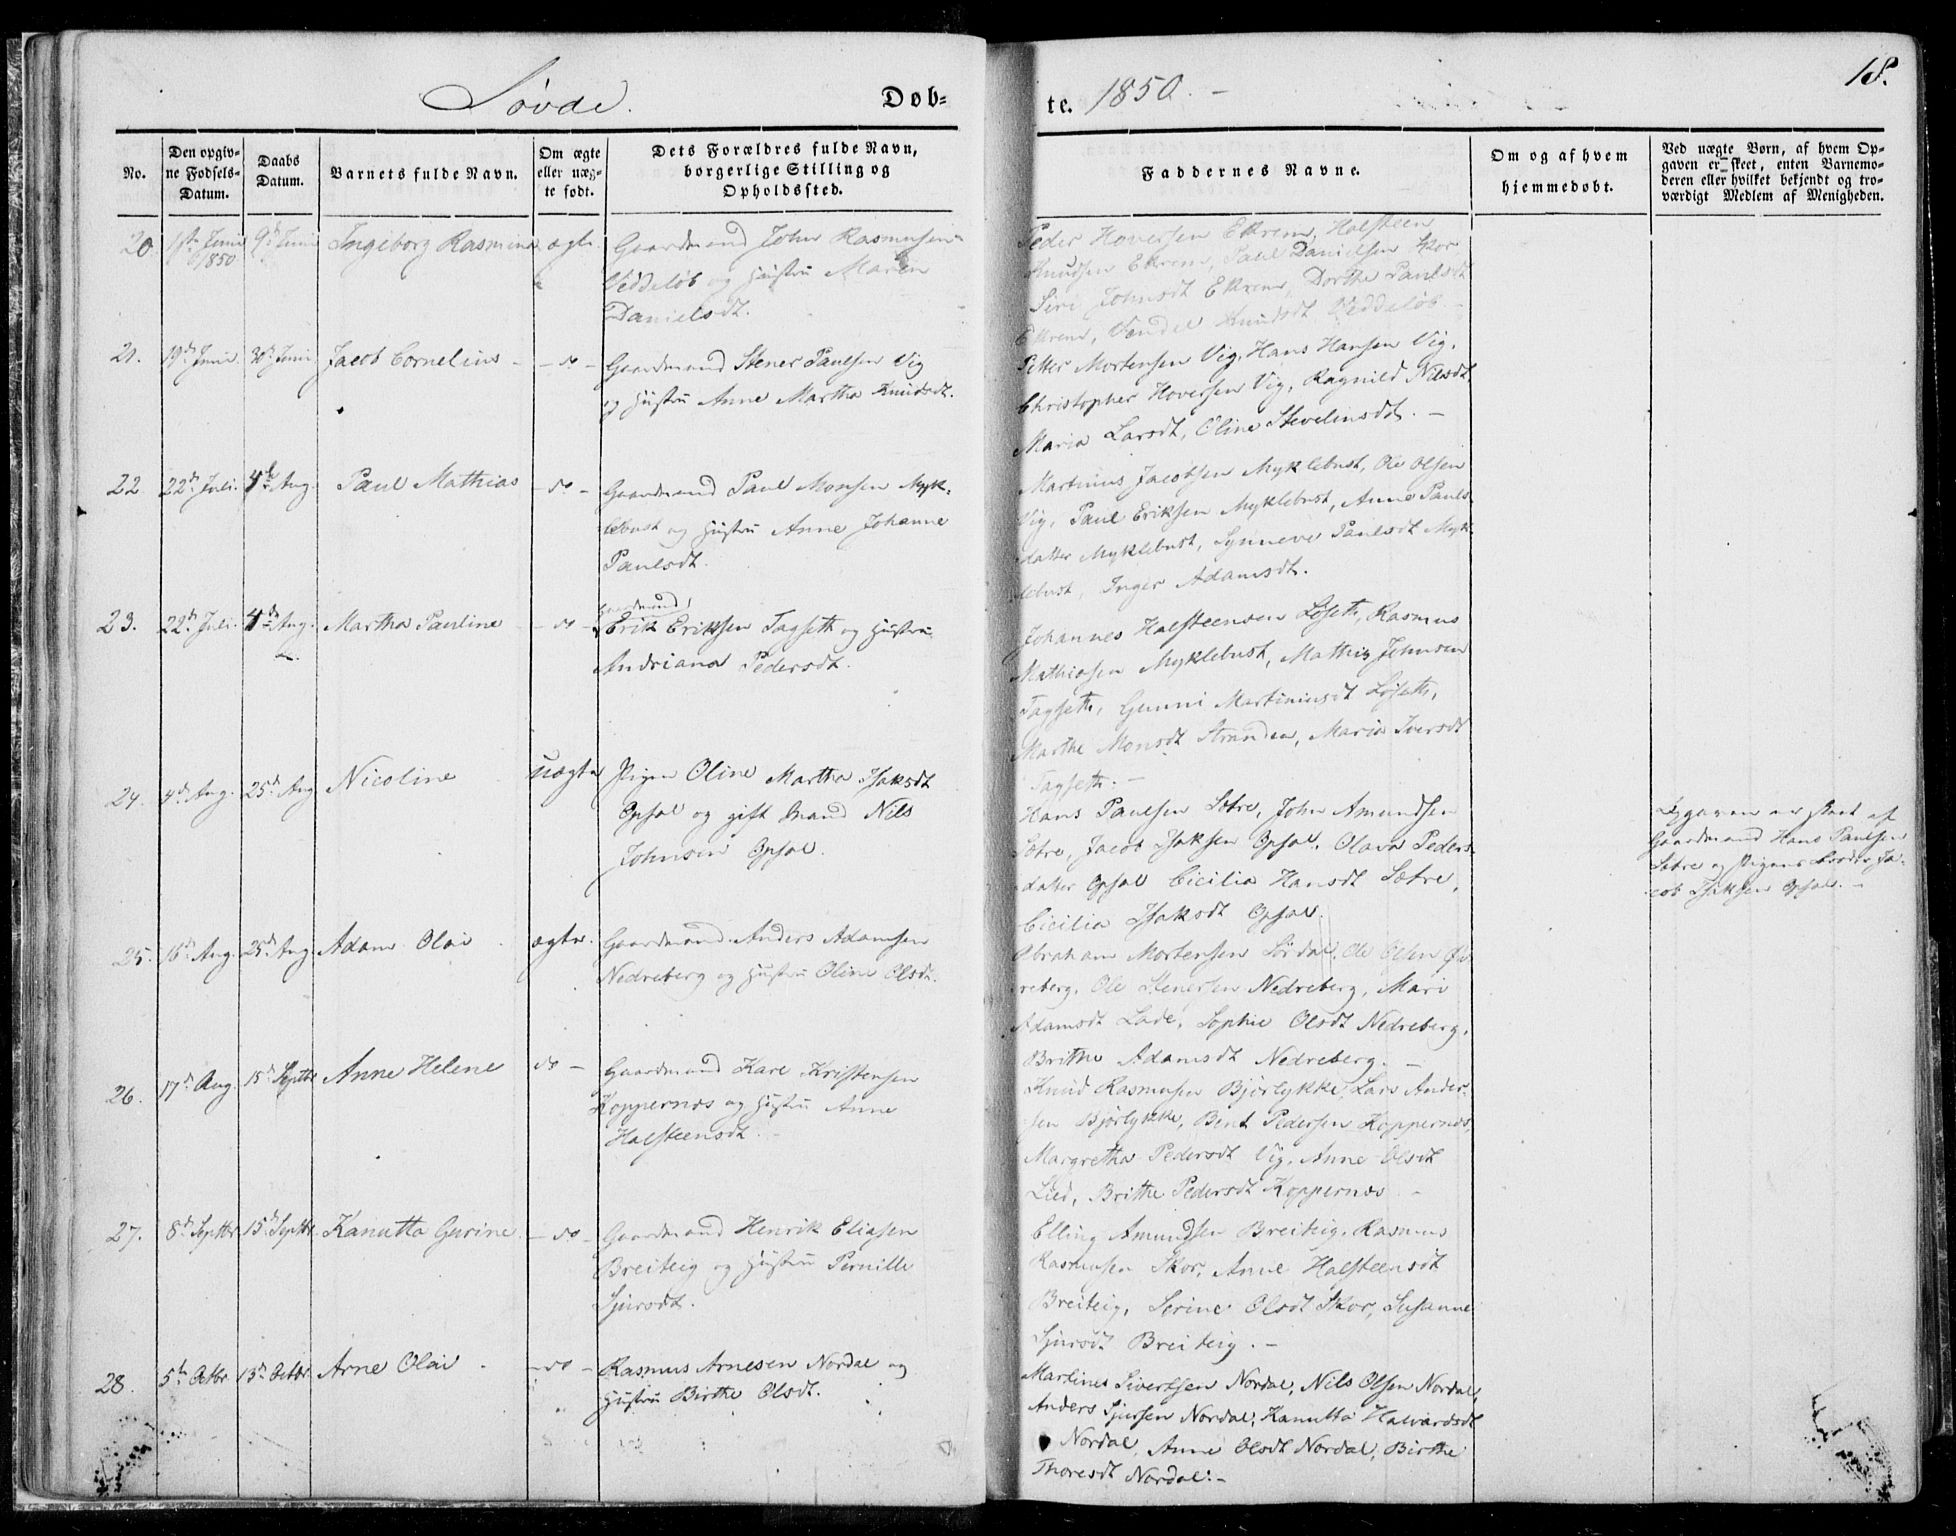 Søvde.
Døb-
te. 1850. -
18.
No.
Den opgiv-
ne Fødsels-
Datum.
Daabs
Datum.
Barnets fulde Navn.
Om ægte
eller uæg-
te født.
Dets Forældres fulde Navn,
borgerlige Stilling og
Opholdssted.
Faddernes Navne.
Om og af hvem
hjemmedøbt.
Ved uægte Børn, af hvem Op-
gaven er skeet, enten Barnemo-
deren eller hvilket bekjendt og tro-
værdigt Medlem af Menigheden.
20. 1ste Junii 1850 9d Junii Ingeborg Rasmine ægte
Gaardmand John Rasmusen
Veddeløb og Hustru Maren
Danielsdt.
Peder Hoversen Ekrem, Halsteen
Knudsen Ekrem, Paul Danielsen Skor
Siri Johnsdt Ekrem, Dorthe Paulsdt
Ekrem, Vendel Knudsdt Veddeløb -
21. 19d Junii 30d Junii Jacob Cornelius - - do -
Gaardmand Stener Paulsen Vig
og Hustru Anne Martha Knudsdt.
Petter Mortensen Vig, Hans Hansen Vig,
Christopher Hoversen Vig, Ragnild Nilsdt
Maria Larsdt, Oline Stevelinsdt. -
22 22d Juli. 4d Aug. Paul Mathias - do -
Gaardmand Paul Monsen Myk-
lebust og Hustru Anne Johanne
Paulsdt.
Martinus Jacobsen Myklebust, Ole Olsen
Vig, Paul Eriksen Myklebust, Anne Pauls-
datter Myklebust, Synneve Paulsdt Myk-
lebust, Inger Adamsdt.
23. 22d Juli. 4d Aug. Martha Pauline - do -
Gaardmand
Erik Eriksen Tagseth og Hustru
Andriana Pedersdt.
Johannes Halsteensen Løseth, Rasmus
Mathiasen Myklebust, Mathis Johnsen
Tagseth, Gunni Martinusdt Løseth,
Marthe Monsdt Stranden, Maria Iversdt
Tagseth. -
24. 4d Aug. 25d Aug Nicoline uægte
Pigen Oline Martha Isaksdt
Opsal og gift Mand Nils
Johnsen Opsal.
Hans Paulsen Sætre, John Amundsen
Sætre, Jacob Isaksen Opsal, Olava Peders-
datter Opsal Cicilia Hansdt Sætre,
Cicilia Isaksdt Opsal.
Opgaven er skeet af
Gaardmand Hans Paulsen
Sætre og Pigens Broder Ja-
cob Isaksen Opsal. -
25. 16d Aug. 25d Aug. Adam Olai ægte.
Gaardmand Anders Adamsen
Nedreberg og Hustru Oline Olsdt.
Abraham Mortensen Sørdal, Ole Olsen Øv-
reberg, Ole Stenersen Nedreberg, Mari
Adamsdt Lade, Sophie Olsdt Nedreberg,
Brithe Adamsdt Nedreberg. -
26. 17d Aug. 15d Septbr Anne Helene do -
Gaardmand Kare Kristensen
Koppernæs og Hustru Anne
Halsteensdt.
Knud Rasmusen Bjørlykke, Lars Ander-
sen Bjørlykke, Bent Pedersen Koppernæs,
Margretha Pedersdt Vig, Anne Olsdt
Lied, Brithe Pedersdt Koppernæs -
27. 8d Septbr 15d Septbr Kanutta Gurine. - do -
Gaardmand Henrik Eliasen
Breiteig og Hustru Pernille
Sjursdt.
Elling Amundsen Breiteig, Rasmus
Rasmusen Skor, Anne Halsteensdt
Breiteig, Serine Olsdt Skor, Susanne
Sjursdt Breiteig. -
28. 5te Octbr 13d Octbr. Arne Olai - do -
Rasmus Arnesen Nordal og
Hustru Birthe Olsdt.
Martines Sivertsen Nordal, Nils Olsen Nordal,
Anders Sjursen Nordal, Kanutta Halvardsdt
Nordal, Anne Olsdt Nordal, Birthe
Thoresdt Nordal. -